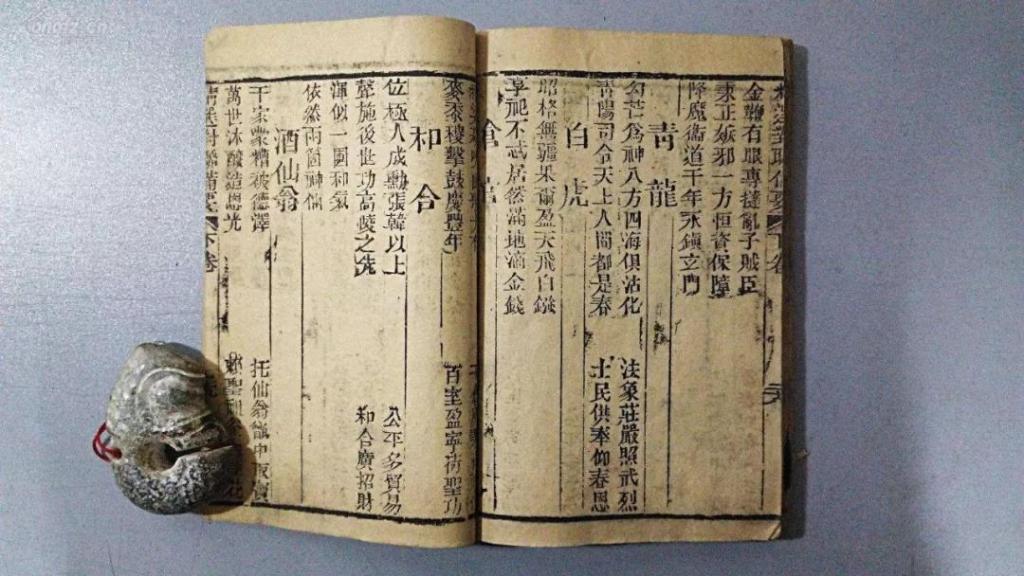 金鞭有眼專撻亂子賊臣
秉正嫉邪一方恒資保障
降魔衛道千年永鎮玄門
青龍
勾芒為神八方四海俱沾化
法象莊嚴照武烈
青陽司令天上人間都是春
士民供奉仰春恩
白虎
昭格無疆果爾盈天飛白鏹
享祀不忒居然滿地滴金錢
麥黍稷擊鼓慶豐年
百室盈寧荷聖功
和合
位極人成勳張韓以上
公平多貿易
聲施後世功高崚之先
和合廣招財
渾似一團和氣
依然兩箇神仙
酒仙翁
千家蒙糟被德澤
托仙翁
萬世沐釀造恩光
下卷